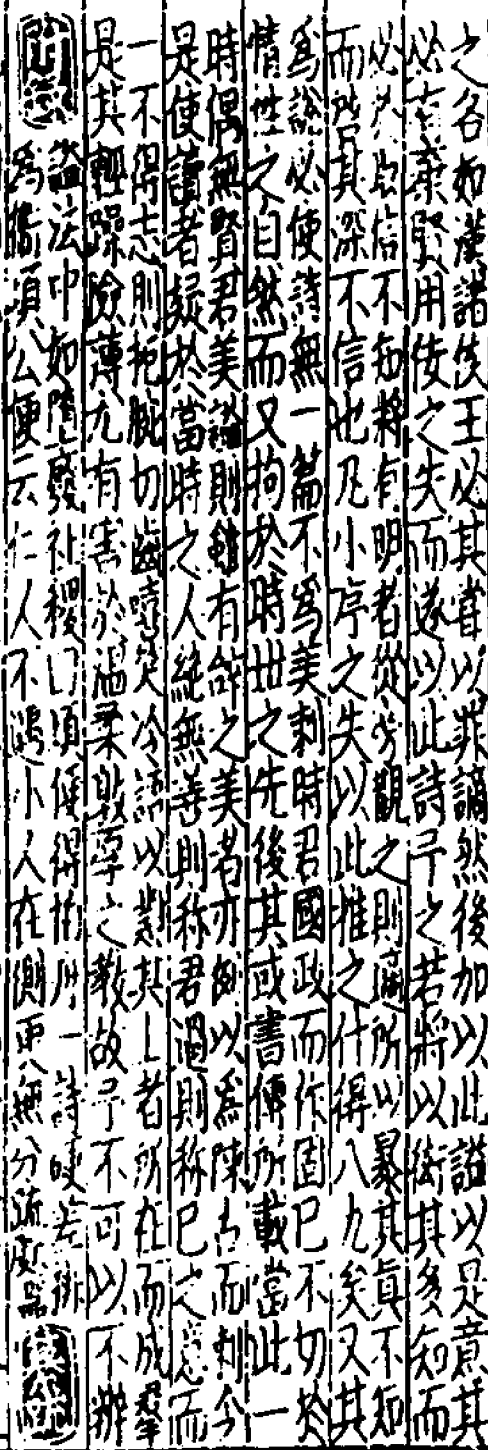 之名如漢諸侯王必其嘗以罪謫然後加以此謚以是意其
必有棄賢用佞之失而遂以此詩予之若將以衒其多知而
必於取信不知將有明者從旁觀之則適所以暴其真不知
而啓其深不信也凡小序之失以此推之什得八九矣又其
爲說必使詩無一篇不爲美刺時君國政而作固已不切於
情性之自然而又拘於時世之先後其或書傳所載當此一
時偶無賢君美謚則雖有辞之美者亦例以爲陳古而刺今
是使讀者疑於當時之人絶無善則称君過則称己之意而
一不得志則扼腕切齒嘻笑冷語以懟其上者所在而成羣
是其輕躁險薄尤有害於温柔敦厚之教故予不可以不辨
謚法中如墮廢社稷曰頃便得柏舟一詩硬差排
爲衛頃公便云仁人不遇小人在側更無分疏處